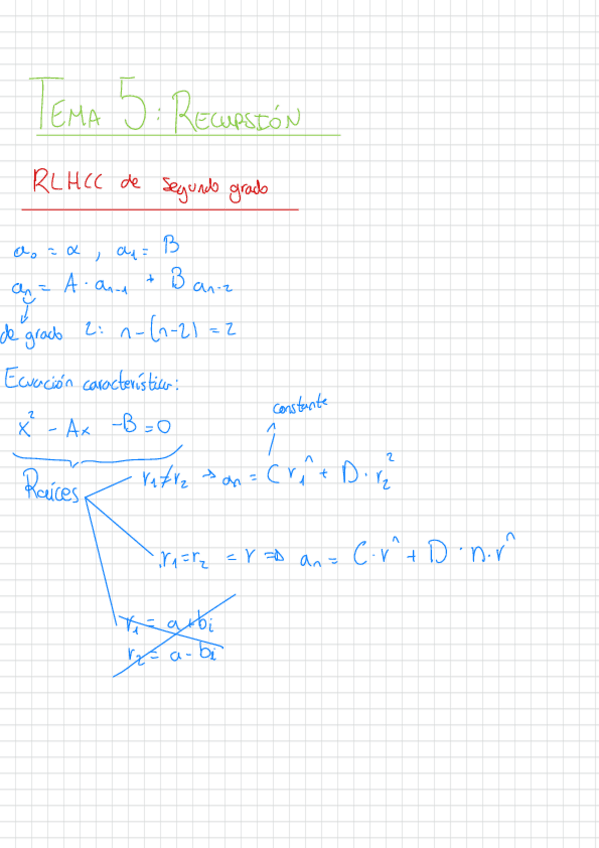 TEMA 5: RECURSIÓN
RLHCC de segundo grado
a₀ = α , a₁ = B
aₙ = A · aₙ₋₁ + B aₙ₋₂
de grado 2: n - (n-2) = 2
Ecuación característica:
constante
x² - Ax - B = 0
Raíces
r₁ ≠ r₂ → aₙ = C r₁ⁿ + D · r₂²
r₁ = r₂ = r ⇒ aₙ = C · rⁿ + D · n · rⁿ
r₁ = a + bi
r₂ = a - bi